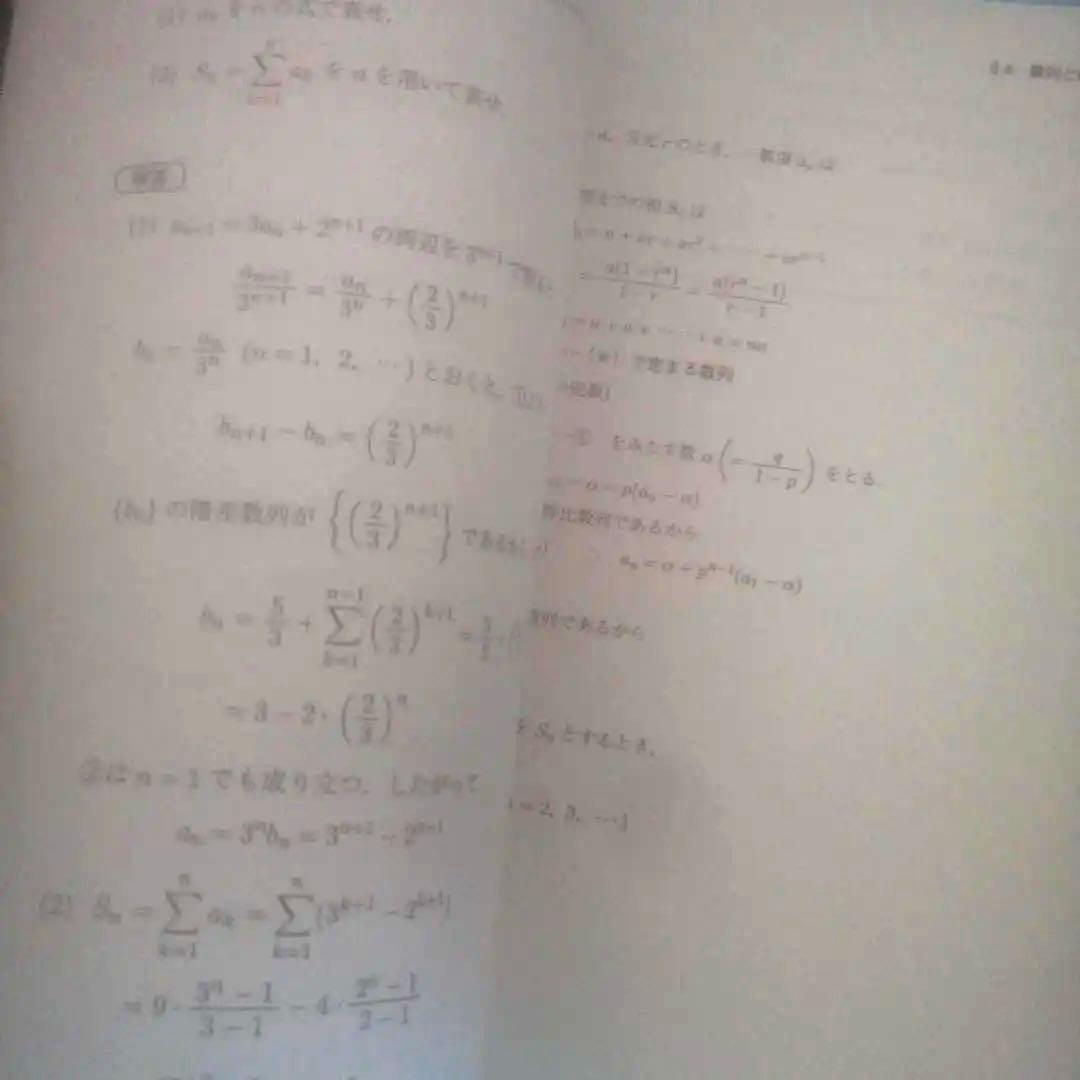 (2) S_n = \sum_{k=1}^{n} a_k を n を用いて表せ.
解答
(1) a_{n+1} = 3a_n + 2^{n+1} の両辺を 3^{n+1} で
\frac{a_{n+1}}{3^{n+1}} = \frac{a_n}{3^n} + \left(\frac{2}{3}\right)^{n+1}
b_n = \frac{a_n}{3^n} (n = 1, 2, …) とおくと,
b_{n+1} - b_n = \left(\frac{2}{3}\right)^{n+1}
{b_n} の階差数列が \left\{\left(\frac{2}{3}\right)^{n+1}\right\} であるから
b_n = \frac{5}{3} + \sum_{k=1}^{n-1} \left(\frac{2}{3}\right)^{k+1} =
= 3 - 2・\left(\frac{2}{3}\right)^n
②は n = 1 でも成り立つ. したがって
a_n = 3^n b_n = 3^{n+1} - 2^{n+1}
(2) S_n = \sum_{k=1}^{n} a_k = \sum_{k=1}^{n} (3^{k+1} - 2^{k+1})
= 9・\frac{3^n - 1}{3 - 1} - 4・\frac{2^n - 1}{2 - 1}
数列と
公比 r のとき, 一般項 a_n は
での和 S_n は
= a + ar + ar^2 + …… + ar^{n-1}
= \frac{a(1 - r^n)}{1 - r} = \frac{a(r^n - 1)}{r - 1}
= a + a + …… + a = na
で定まる数列
をみたす数 α \left(= \frac{q}{1 - p}\right) をとる.
- α = p(a_n - α)
等比数列であるから
a_n = α + p^{n-1}(a_1 - α)
数列であるから
を S_n とするとき,
= 2, 3, …)